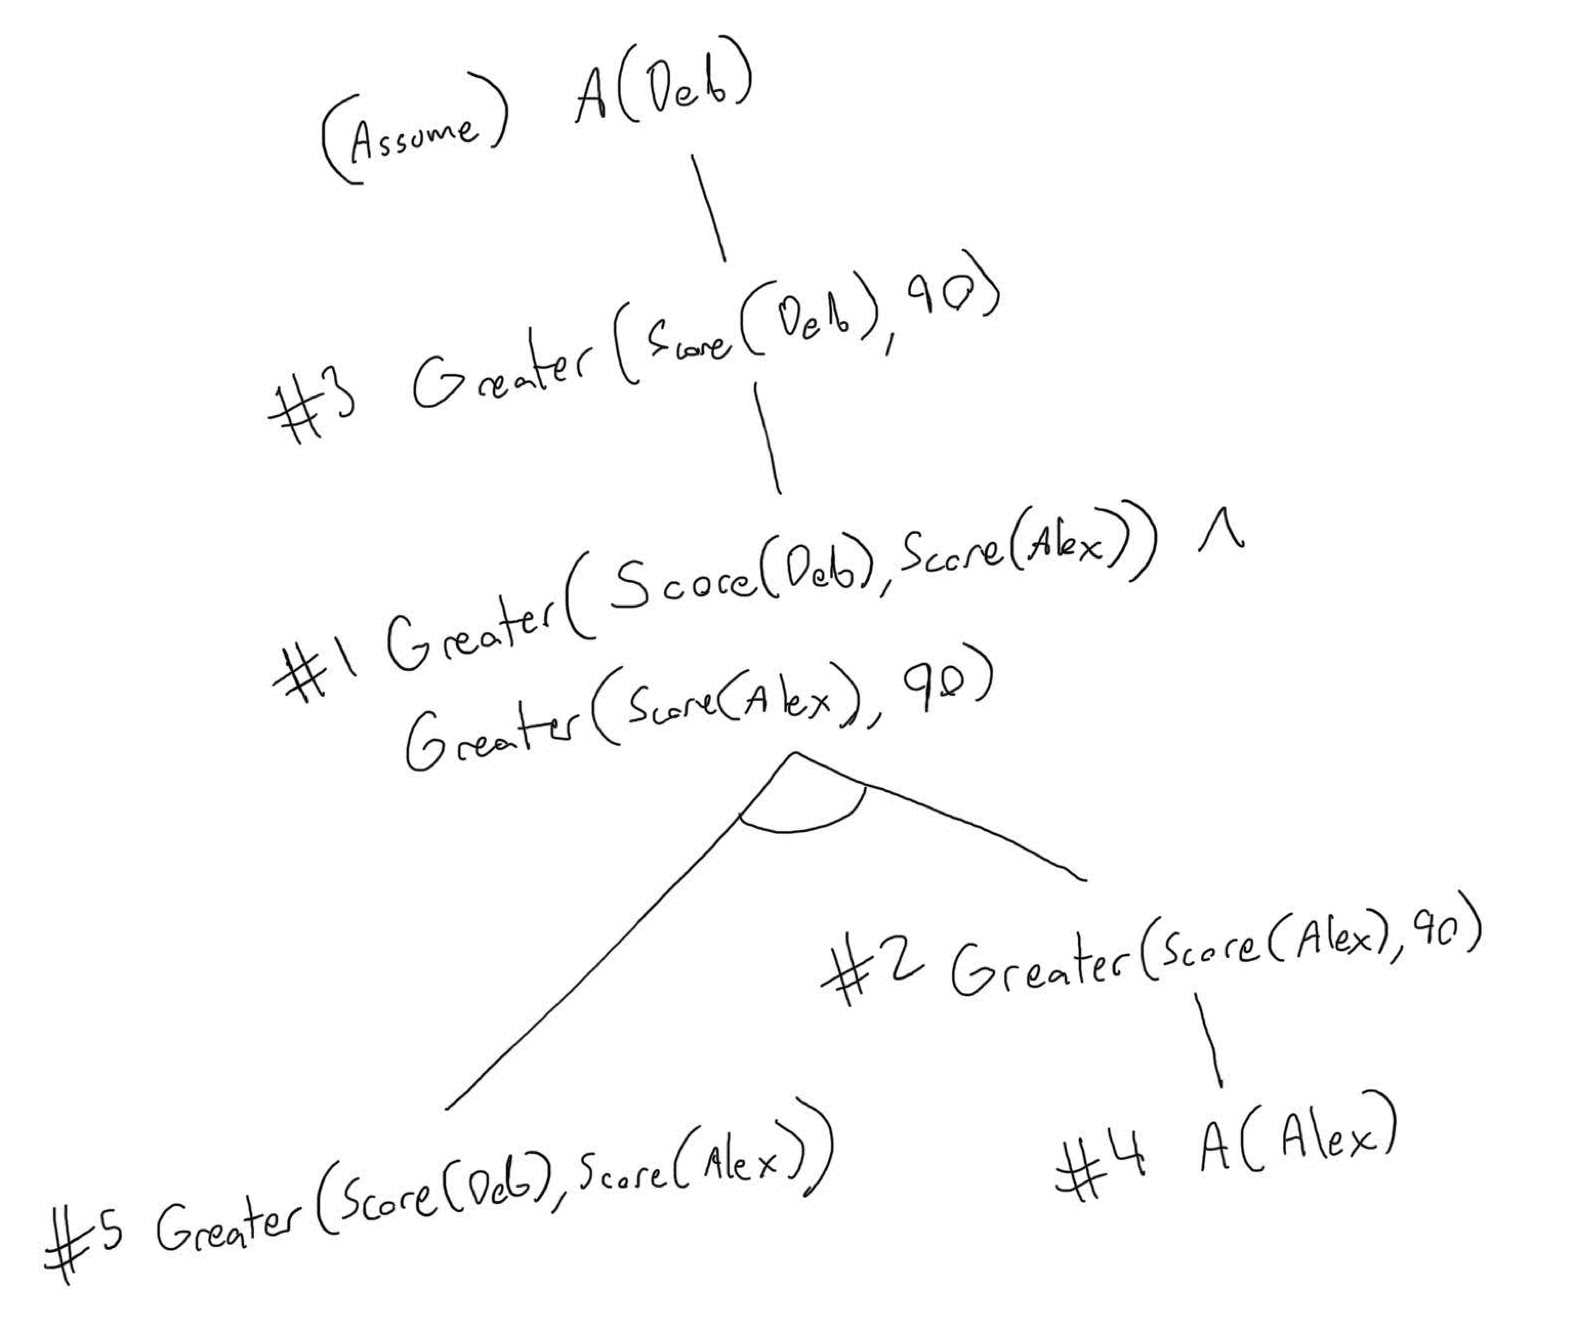 (Assume) A(Deb)
#3 Greater(Score(Deb), 90)
#1 Greater(Score(Deb), Score(Alex)) ∧
Greater(Score(Alex), 90)
#2 Greater(Score(Alex), 90)
#4 A(Alex)
#5 Greater(Score(Deb), Score(Alex))